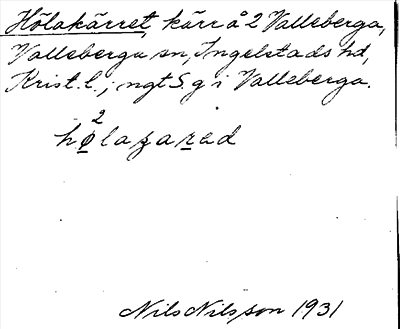 Hölakärret, kärr å 2 Valleberga,
Valleberga sn, Ingelstads hd,
Krist. l.; ngt S. g i Valleberga.
2
Nils Nilsson 1931